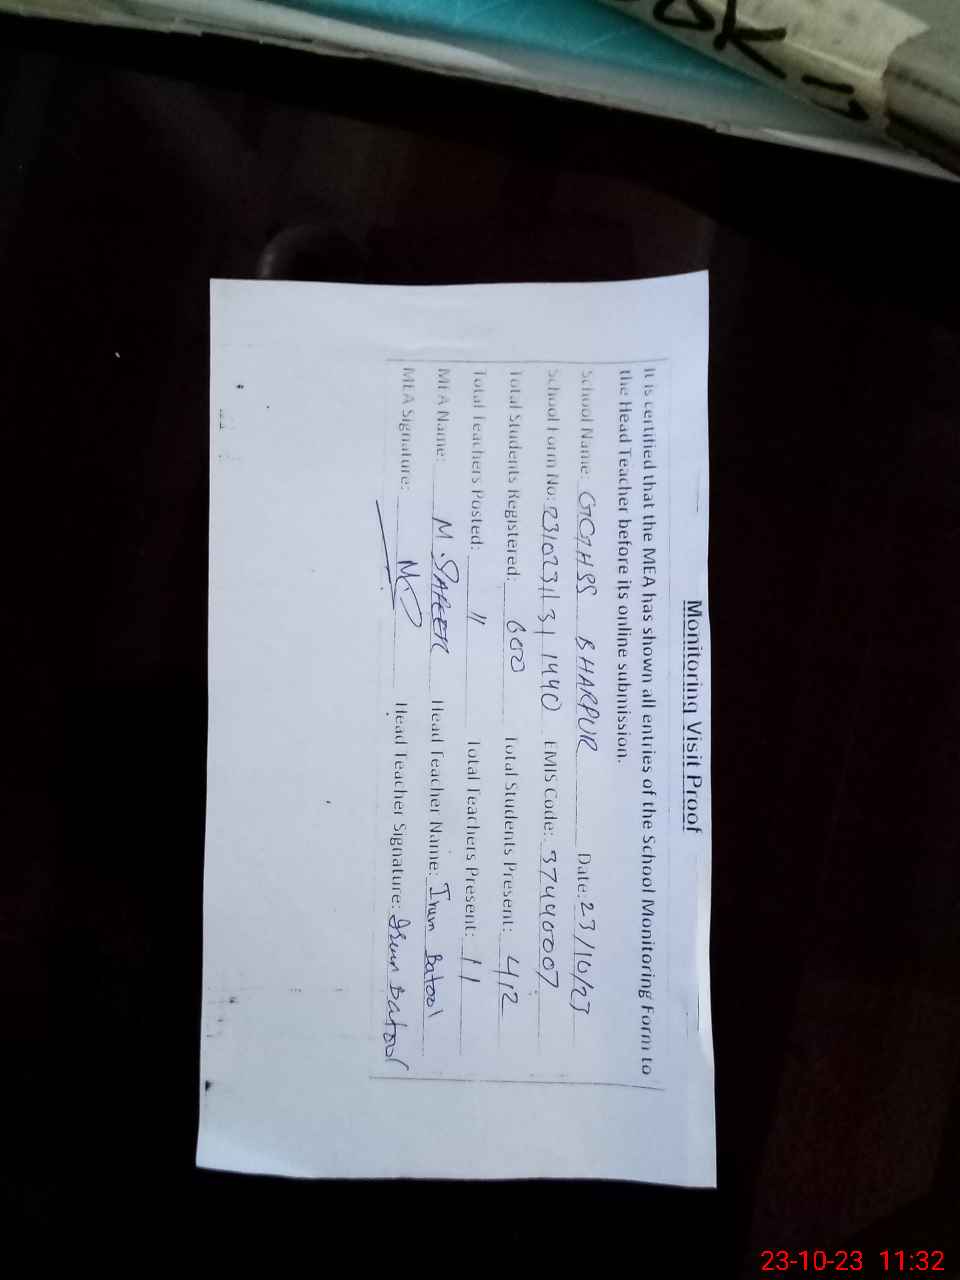 Monitoring Visit Proof
It is certified that the MEA has shown all entries of the School Monitoring Form to
the Head Teacher before its online submission.
School Name: GGHSS BHARPUR Date: 23/10/23
School Form No: EMIS Code: 37440007
Total Students Registered: 600 Total Students Present: 412
Total Teachers Posted: 11 Total Teachers Present: 11
MEA Name: M. SAFEER Head Teacher Name: Irum Batool
MEA Signature: Head Teacher Signature: Irum Batool
23-10-23 11:32